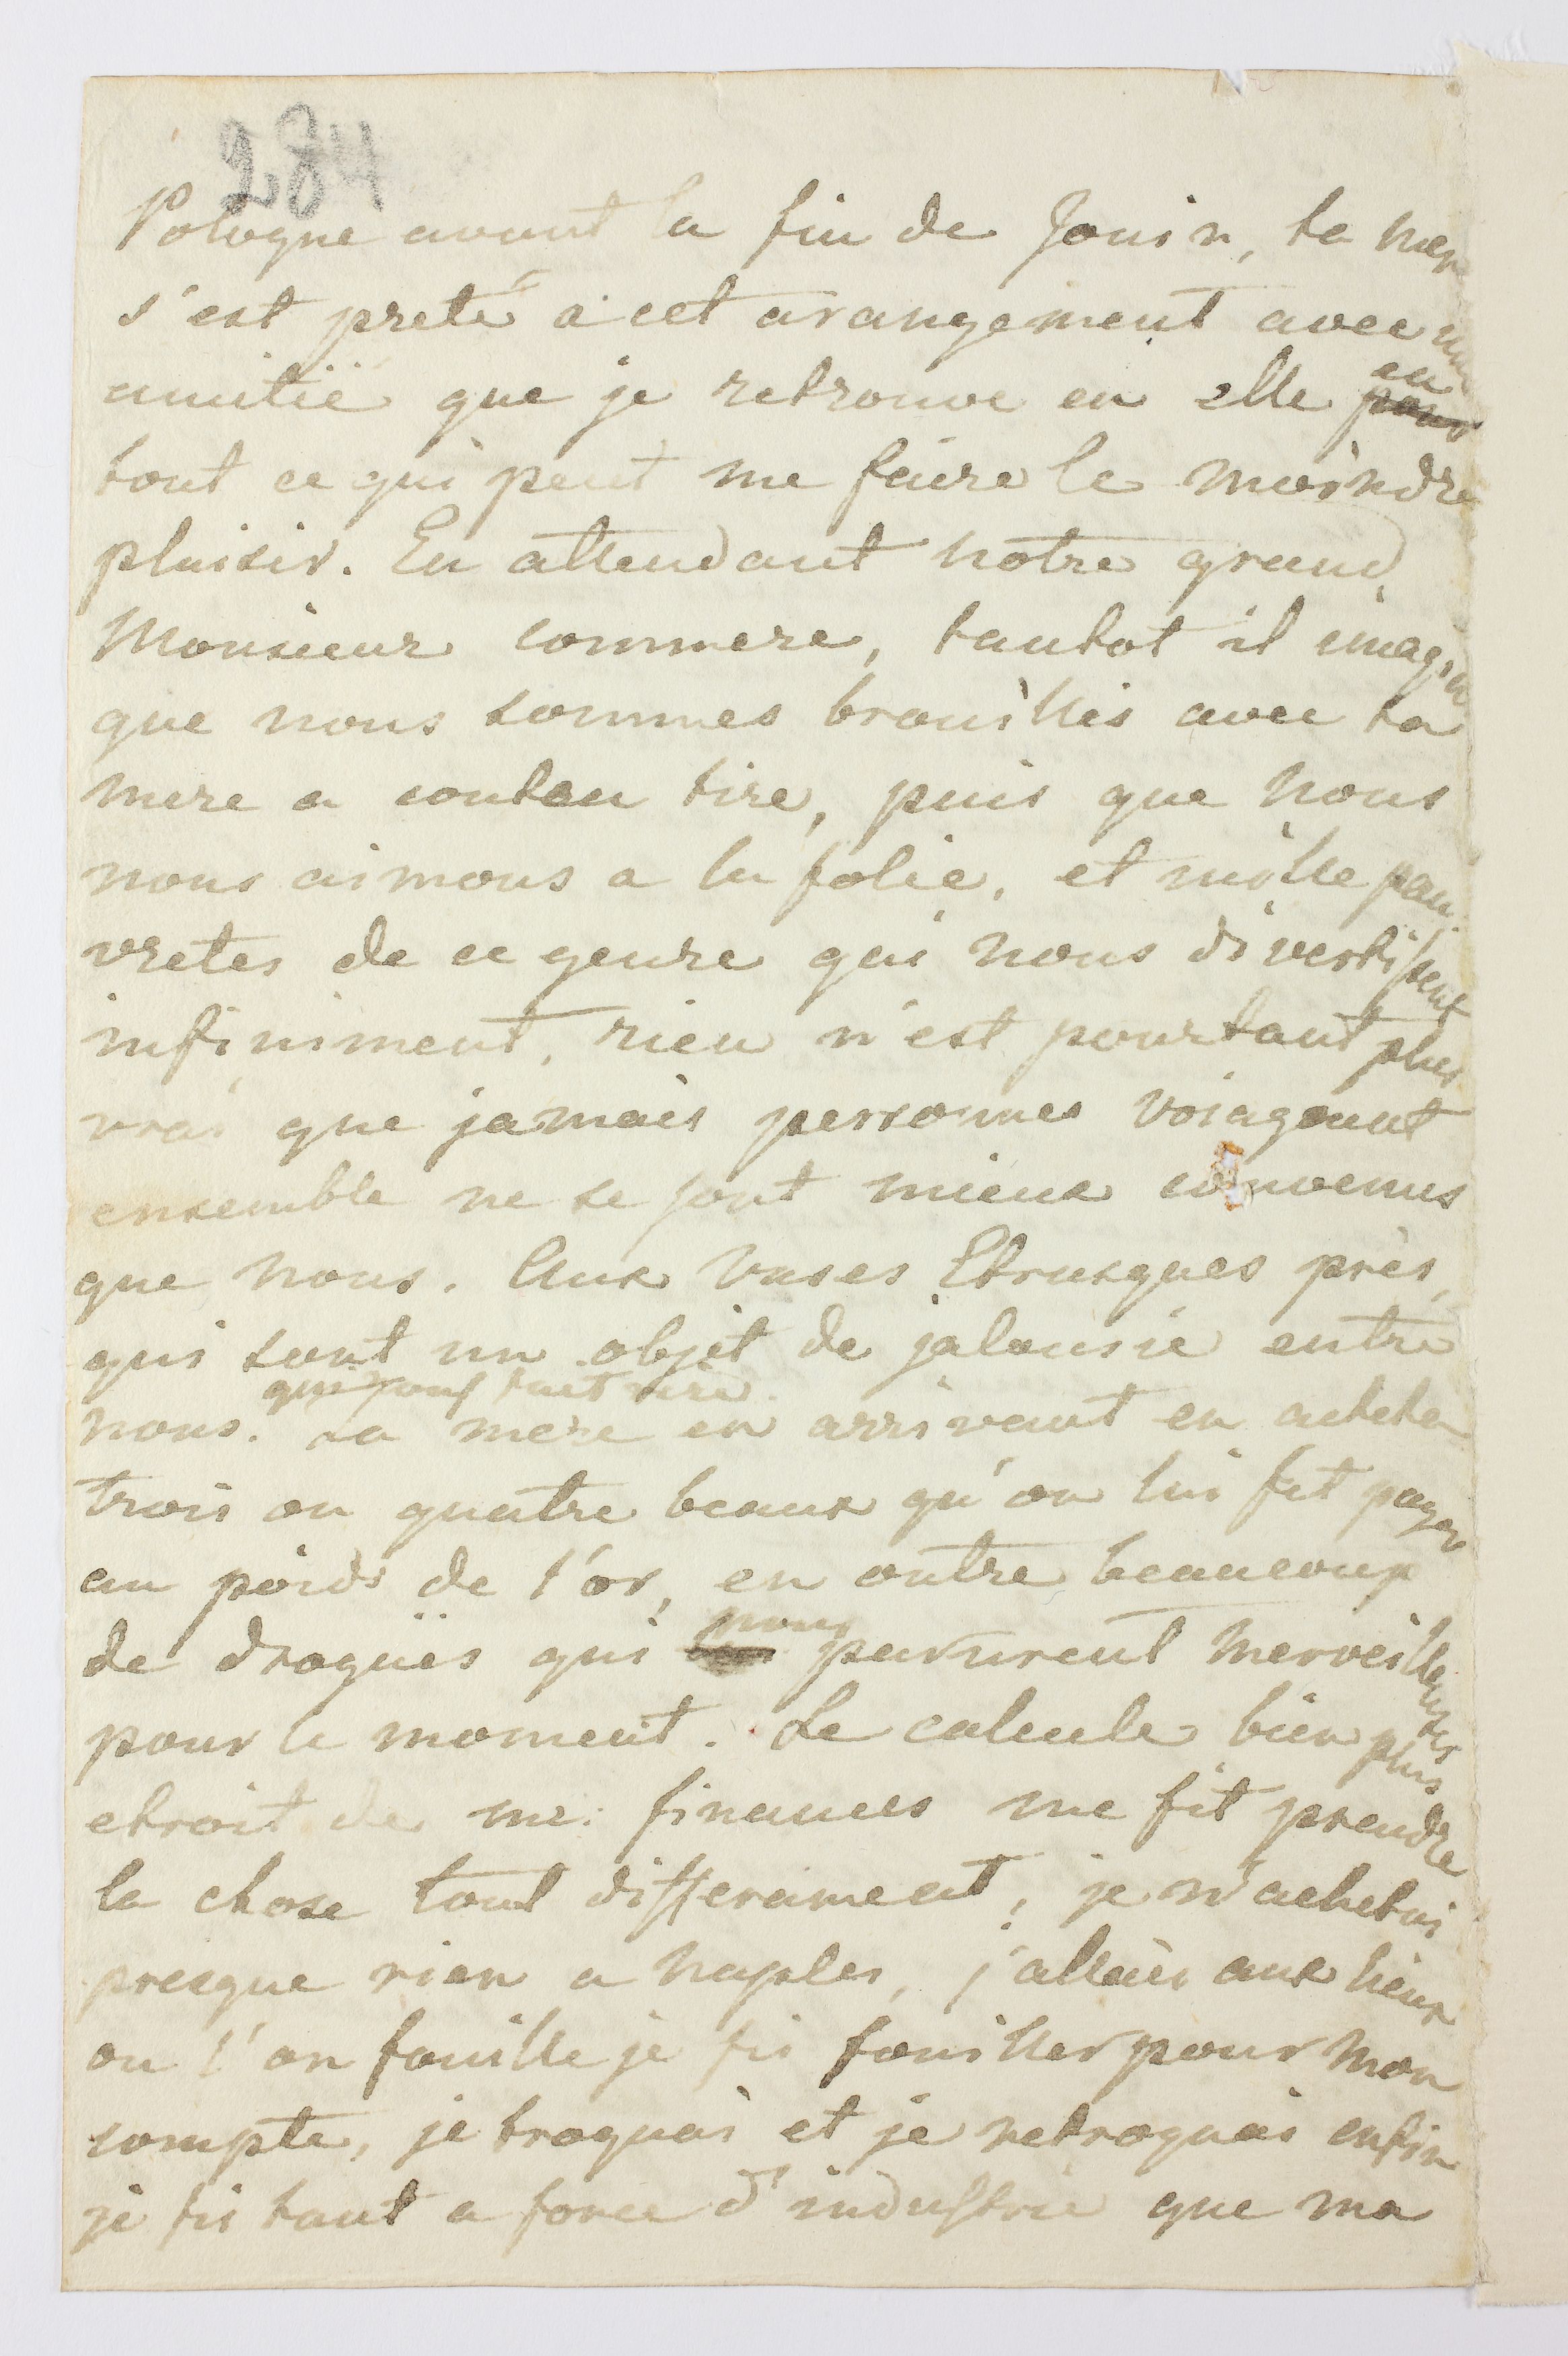 284
Pologne avant la fin de Jouin, ta mere
s'est preté a cet arangement avec une
amitië que je retrouve en elle en pour
tout ce qui peut me faire le moindre
plaisir. En attendant notre grand
Monsieur commere, tantot il imagine
que nous sommes brouilles avec ta
mere a couteau tire, puis que nous
nous aimons a la folie, et mille pau-
vretes de ce genre qui nous divertissent
infiniment, rien n'est pourtant plus
vrai que jamais personnes voiageant
ensemble ne se sont mieux convenus
que nous. Aux Vases Etrusques près,
qui sont un objet de jalousie entre
qui vous fait rire.
nous. ta mere en arrivant en acheta
trois ou quatre beaux qu'on lui fit payer
au poids de l'or, en outre beaucoup
nous
de drogües qui parurent merveilleuses
pour le moment. Le calcule bien plus
etroit de me: finances me fit prendre
la chose tout differament, je n'achetai
presque rien a Naples, j'allais aux lieux
ou l'on fouille je fis fouiller pour mon
compte, je troquai et je retroquai enfin
je fis tant a force d'industrie que ma